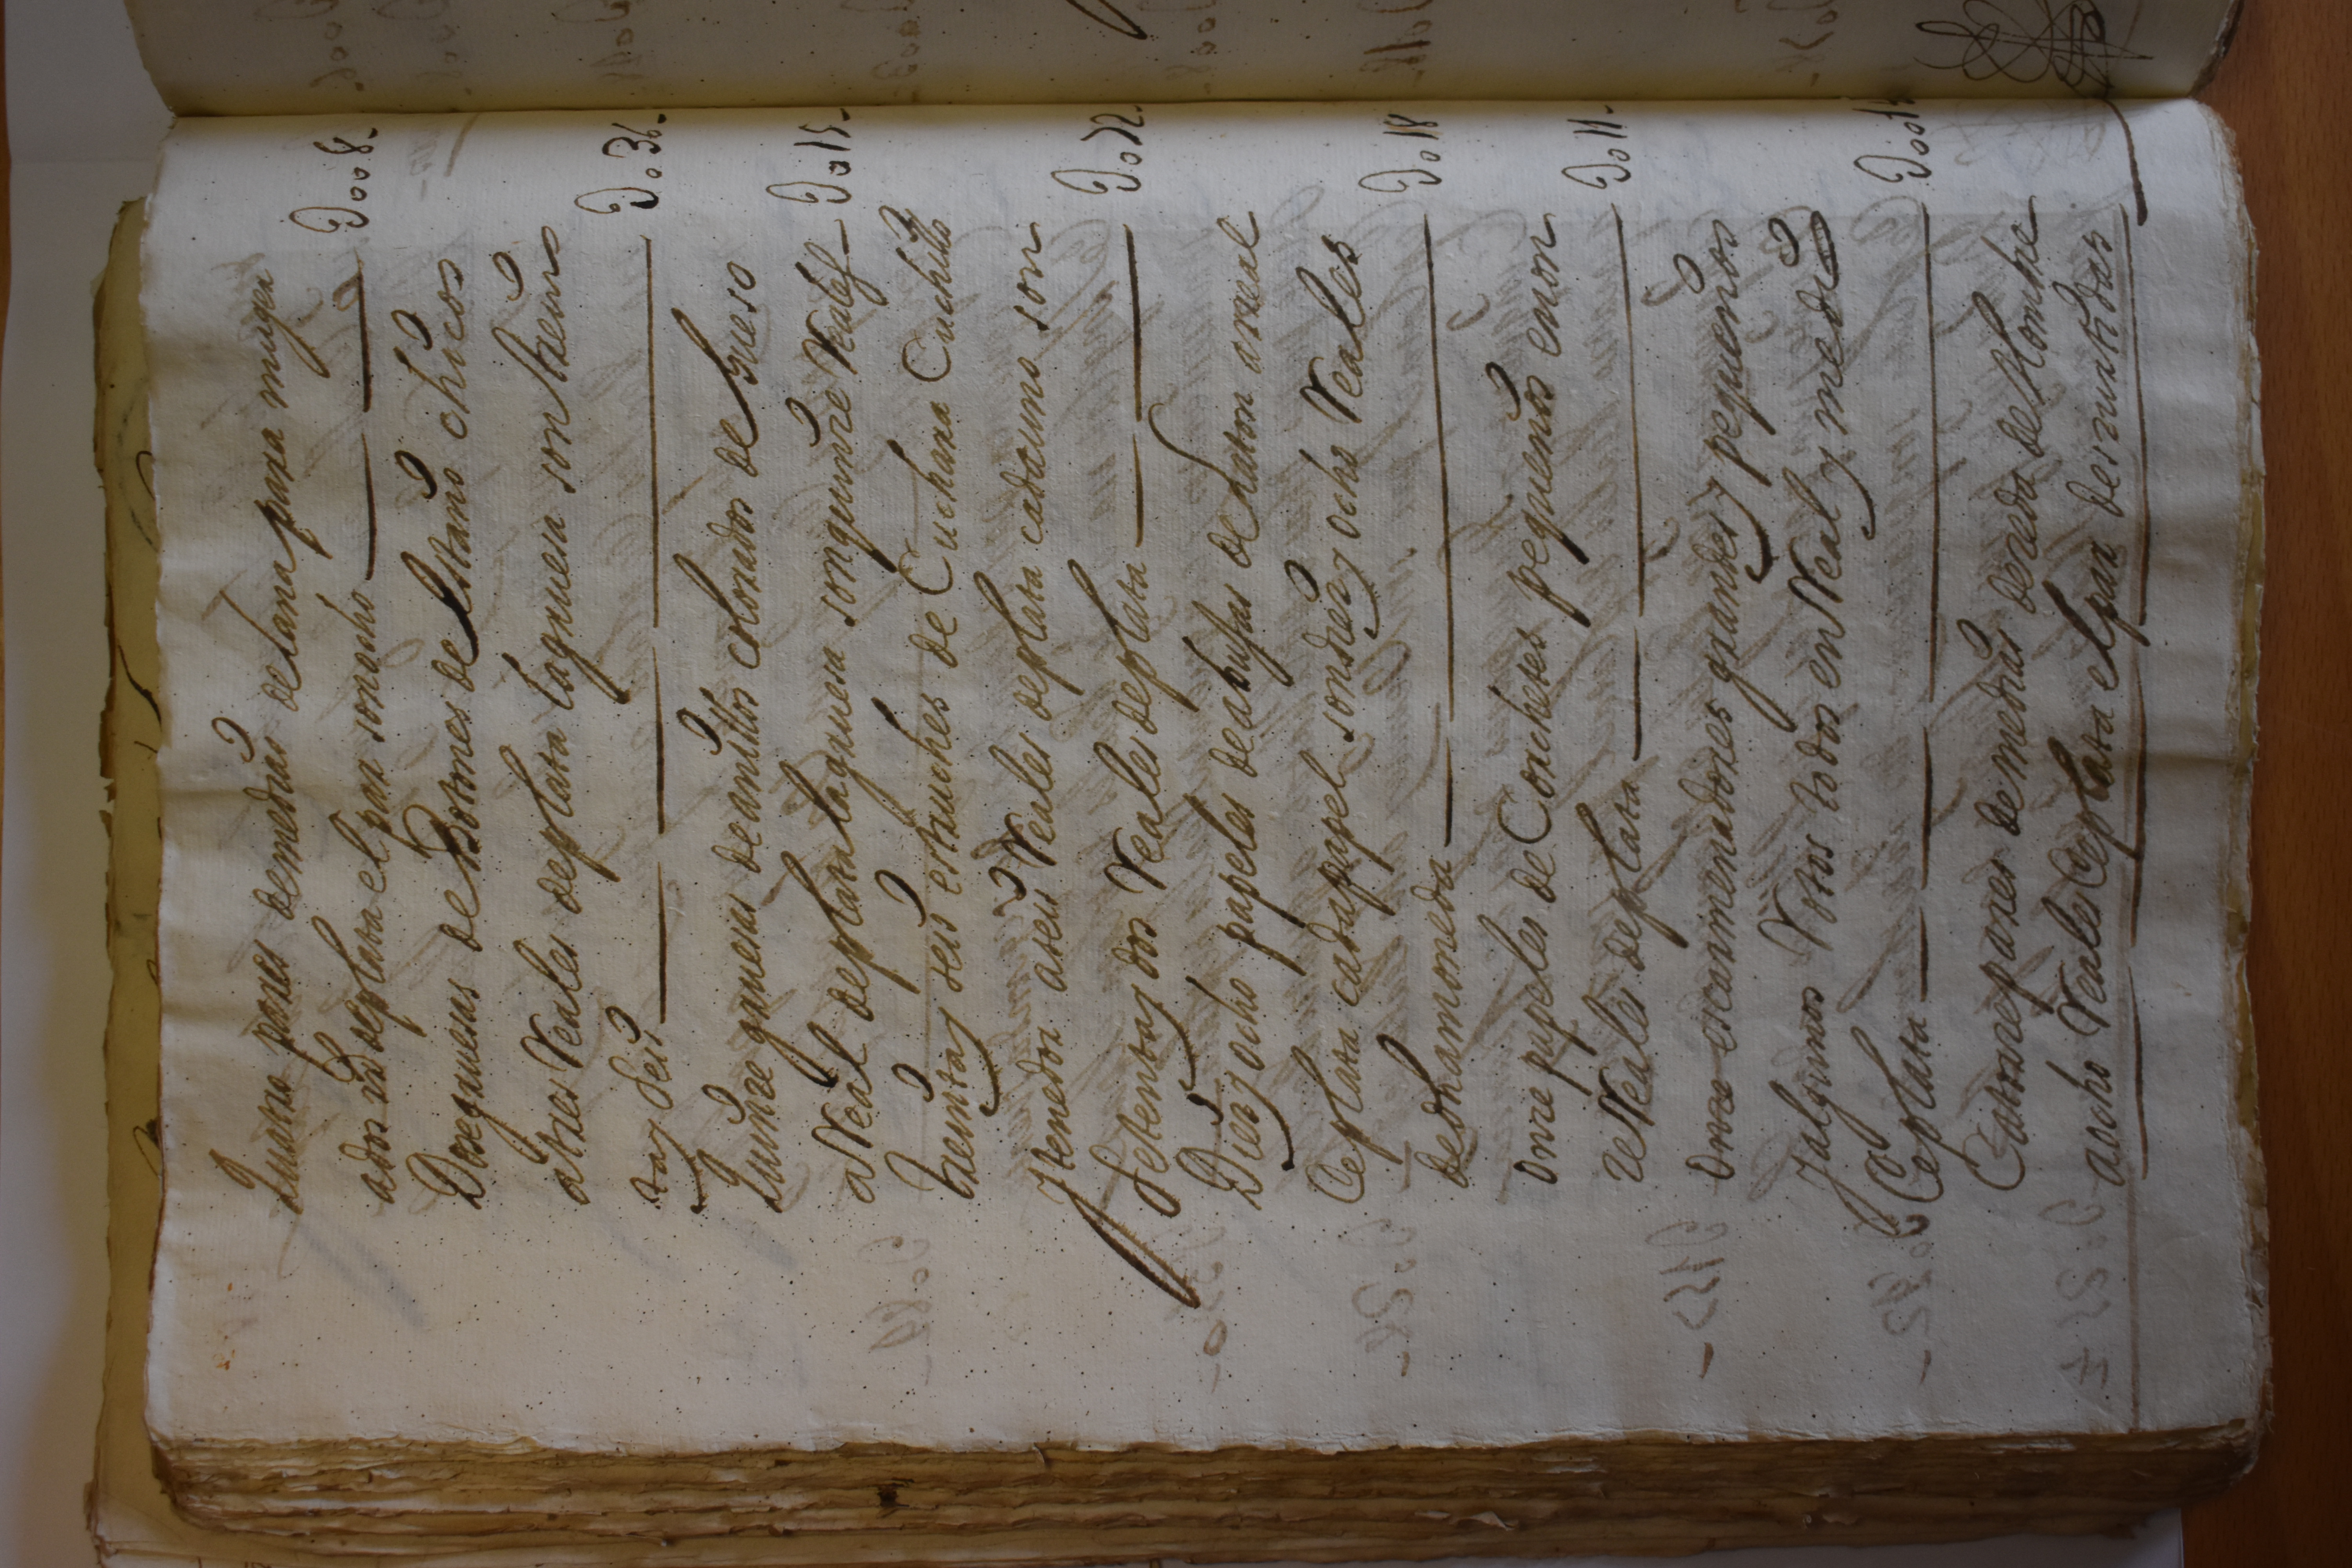 Quatro pares demedias delana para muger
ados rs deplata el par son ocho — Do o 8
Dosegruesas de Botones de estaño chicos
atres Reales deplata lagruesa son trein
ta y seis — Do 36
Quinze gruesas de anillos colorados de hueso
a Real de plata la gruesa son quinze Reales — Do 15
treinta y seis estuuches de Cuchara Cuchillo
y tenedor aseis Reales deplata cada uno son
setenta y dos Reales deplata — Do 72
Diez y ocho papeles de abujas de chaton a real
de plata cada papel son diez y ocho Reales
de dha moneda — Do 18
onze papeles de Corchetes pequenos en on
ze Reales de plata — Do 11
onze escarmenadores grandes y pequenos
y algunos Rotos todos en Real y medio
de plata — Do o 1
Catorze pares de medias de seda de hombre
aocho Reales de plata el par